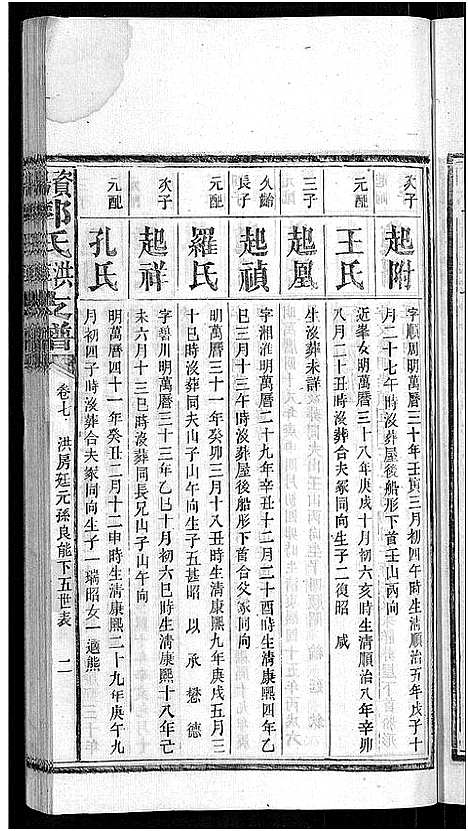 次子
起附
字順周明萬曆三十年壬寅三月初四午時生清順治五年戊子十
月二十七午時沒葬屋後船形下首壬山丙向
元配
王氏
近峯女明萬曆三十八年庚戌十月初六亥時生清順治八年辛卯
八月二十丑時沒葬合夫冢同向生子二復昭 咸
三子
起鳳
生沒葬未譜
久貽
長子
起禎
字湘淮明萬曆二十九年辛丑十二月二十酉時生清康熙四年乙
巳三月十三午時沒葬屋後船形下首合父冢同向
元配
羅氏
明萬曆三十一年癸卯三月十八丑時生清康熙九年庚戌五月三
十巳時沒葬同夫山子山午向生子五甚昭 以 承 懋 德
次子
起祥
字碧川明萬曆三十三年乙巳十月初六巳時生清康熙十八年己
未六月十三巳時沒葬同長兄山子山午向
元配
孔氏
明萬曆四十一年癸丑二月十二申時生清康熙二十九年庚午九
月初四子時沒葬合夫冢同向生子一瑞昭女一適熊
資 氏洪之譜
卷七 洪房廷元孫良能下五世表 二